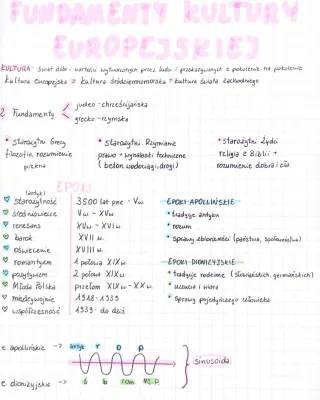 FUNDAMENTY KULTURY
EUROPEJSKIEJ
KULTURA - świat dóbr i wartości wytworzonych przez ludzi i przekazywanych z pokolenia na pokolenie
kultura europejska = kultura śródziemnomorska = kultura świata zachodniego
2 Fundamenty
judeo - chrześcijańska
grecko - rzymska
• starożytni Grecy
filozofia, rozumienie
piękna
• starożytni Rzymianie
prawo + wynalazki techniczne
(beton, wodociągi, drogi)
• starożytni Żydzi
religia z Biblii +
rozumienie dobra i zła
EPOKI
(antyk)
starożytność 3500 lat pne - Vw
średniowiecze Vw - XVw
renesans XVw - XVIw
barok XVII w.
oświecenie XVIII w.
romantyzm 1 połowa XIXw
pozytywizm 2 połowa XIXw
Młoda Polska przełom XIXw - XXw.
międzywojnie 1918 - 1939
współczesność 1939 - do dziś
EPOKI APOLLIŃSKIE
• tradycje antyku
• rozum
• sprawy zbiorowości (państwa, społeczeństwa)
EPOKI DIONIZYJSKIE
• tradycje rodzime (słowiańskich, germańskich)
• uczucia i wiara
• sprawy pojedynczego człowieka
e. apollińskie -> antyk r o p
sinusoida
e. dionizyjskie -> ś b rom M.P